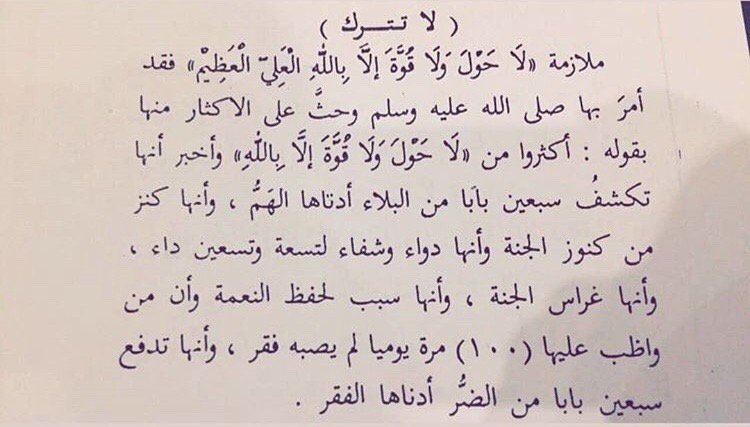 ( لا تترك )
ملازمة «لَا حَوْلَ وَلَا قُوَّةَ إلَّا بِاللهِ الْعَلِيّ الْعَظِيْمْ» فقد
أمرَ بها صلى الله عليه وسلم وحثَّ على الاكثار منها
بقوله : أكثروا من «لَا حَوْلَ وَلَا قُوَّةَ إلَّا بِاللهِ» وأخبر أنها
تكشفُ سبعين بابَا من البلاء أدناها الهَمُّ ، وأنها كنز
من كنوز الجنة وأنها دواء وشفاء لتسعة وتسعين داء ،
وأنها غراس الجنة ، وأنها سبب لحفظ النعمة وأن من
واظب عليها (١٠٠) مرة يوميا لم يصبه فقر ، وأنها تدفع
سبعين بابا من الضرُّ أدناها الفقر .